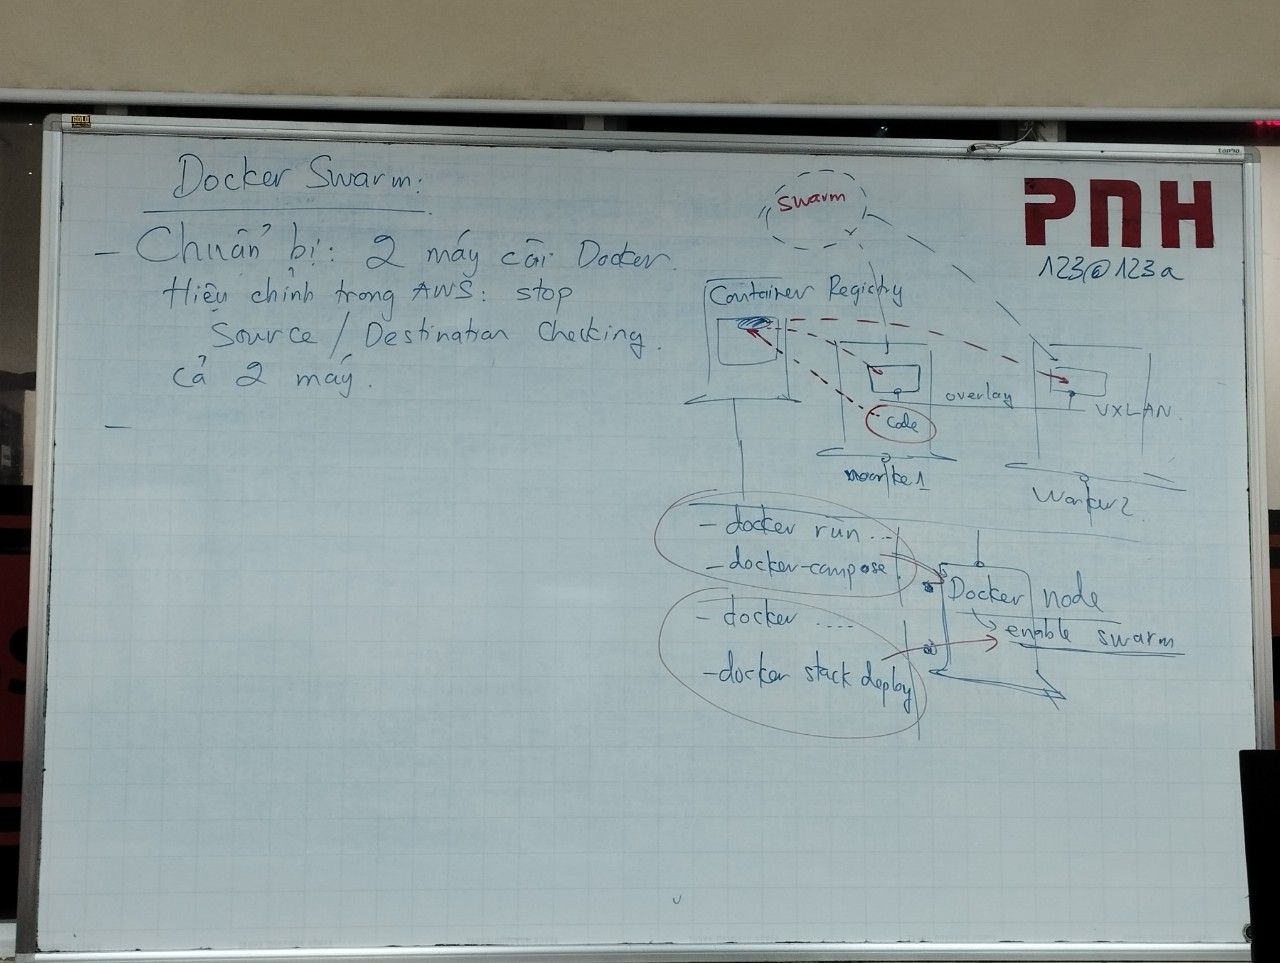 Docker Swarm:
- Chuẩn bị: 2 máy cài Docker.
Hiệu chỉnh trong AWS: stop
Source / Destination Checking.
cả 2 máy.
-
swarm
PNH
123@123a
Container Registry
overlay
VXLAN.
code
Worker2
- docker run ...
- docker-compose
- docker ....
- docker stack deploy
Docker node
enable swarm
GOLD